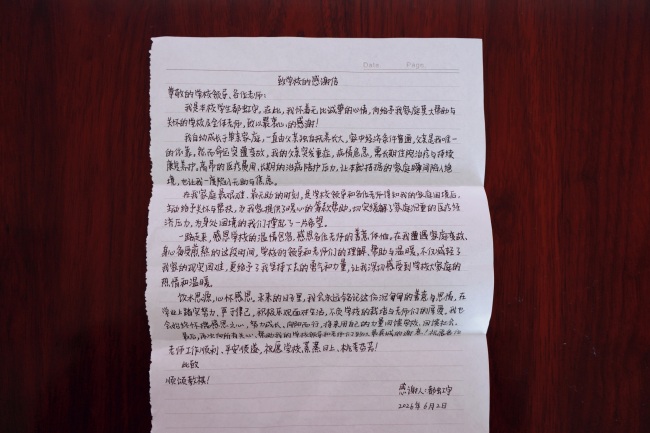 Date. Page.
致学校的感谢信
尊敬的学校领导、各位老师:
我是本校学生都虹宇,在此,我怀着无比诚挚的心情,向给予我家庭莫大帮助与
关怀的学校及全体老师,致以最衷心的感谢!
我自幼成长于单亲家庭,一直由父亲独自抚养长大,家中经济条件普通,父亲是我唯一
的依靠,然而命运突遭变故,我的父亲突发重症,病情危急,需长期住院治疗与持续
康复养护,高昂的医疗费用、长期的治病陪护压力,让本就拮据的家庭瞬间陷入绝
境,也让我一度陷入无助与焦虑。
在我家庭最艰难、最无助的时刻,是学校领导和各位老师得知我的家庭困境后,
主动给予关怀与帮扶,为我家提供了暖心的筹款帮助,切实缓解了家庭沉重的医疗经
济压力,为身处困境的我们撑起了一片希望。
一路走来,感恩学校的温情包容,感恩各位老师的善意伴他,在我遭遇家庭变故、
身心备受煎熬的这段时间,学校的领导和老师们的理解、帮助与温暖,不仅减轻了
我家的现实困难,更给予了我坚持下去的勇气和力量,让我深切感受到学校大家庭的
热情和温暖。
饮水思源,心怀感恩,未来的日子里,我会永远铭记这份沉甸甸的善意与恩情,在
学业上踏实努力、严于律己,积极乐观面对生活,不负学校的栽培与老师们的厚爱,我也
会始终怀揣感恩之心,努力成长,向阳而行,将来用自己的力量回馈母校、回馈社会。
最后,再次向所有关心、帮助我的学校领导和老师们致以最真诚的谢意!祝愿各位
老师工作顺利、平安健康,祝愿学校蒸蒸日上、桃李芬芳!
此致
顺颂教祺!
感谢人:都虹宇
2026年6月2日